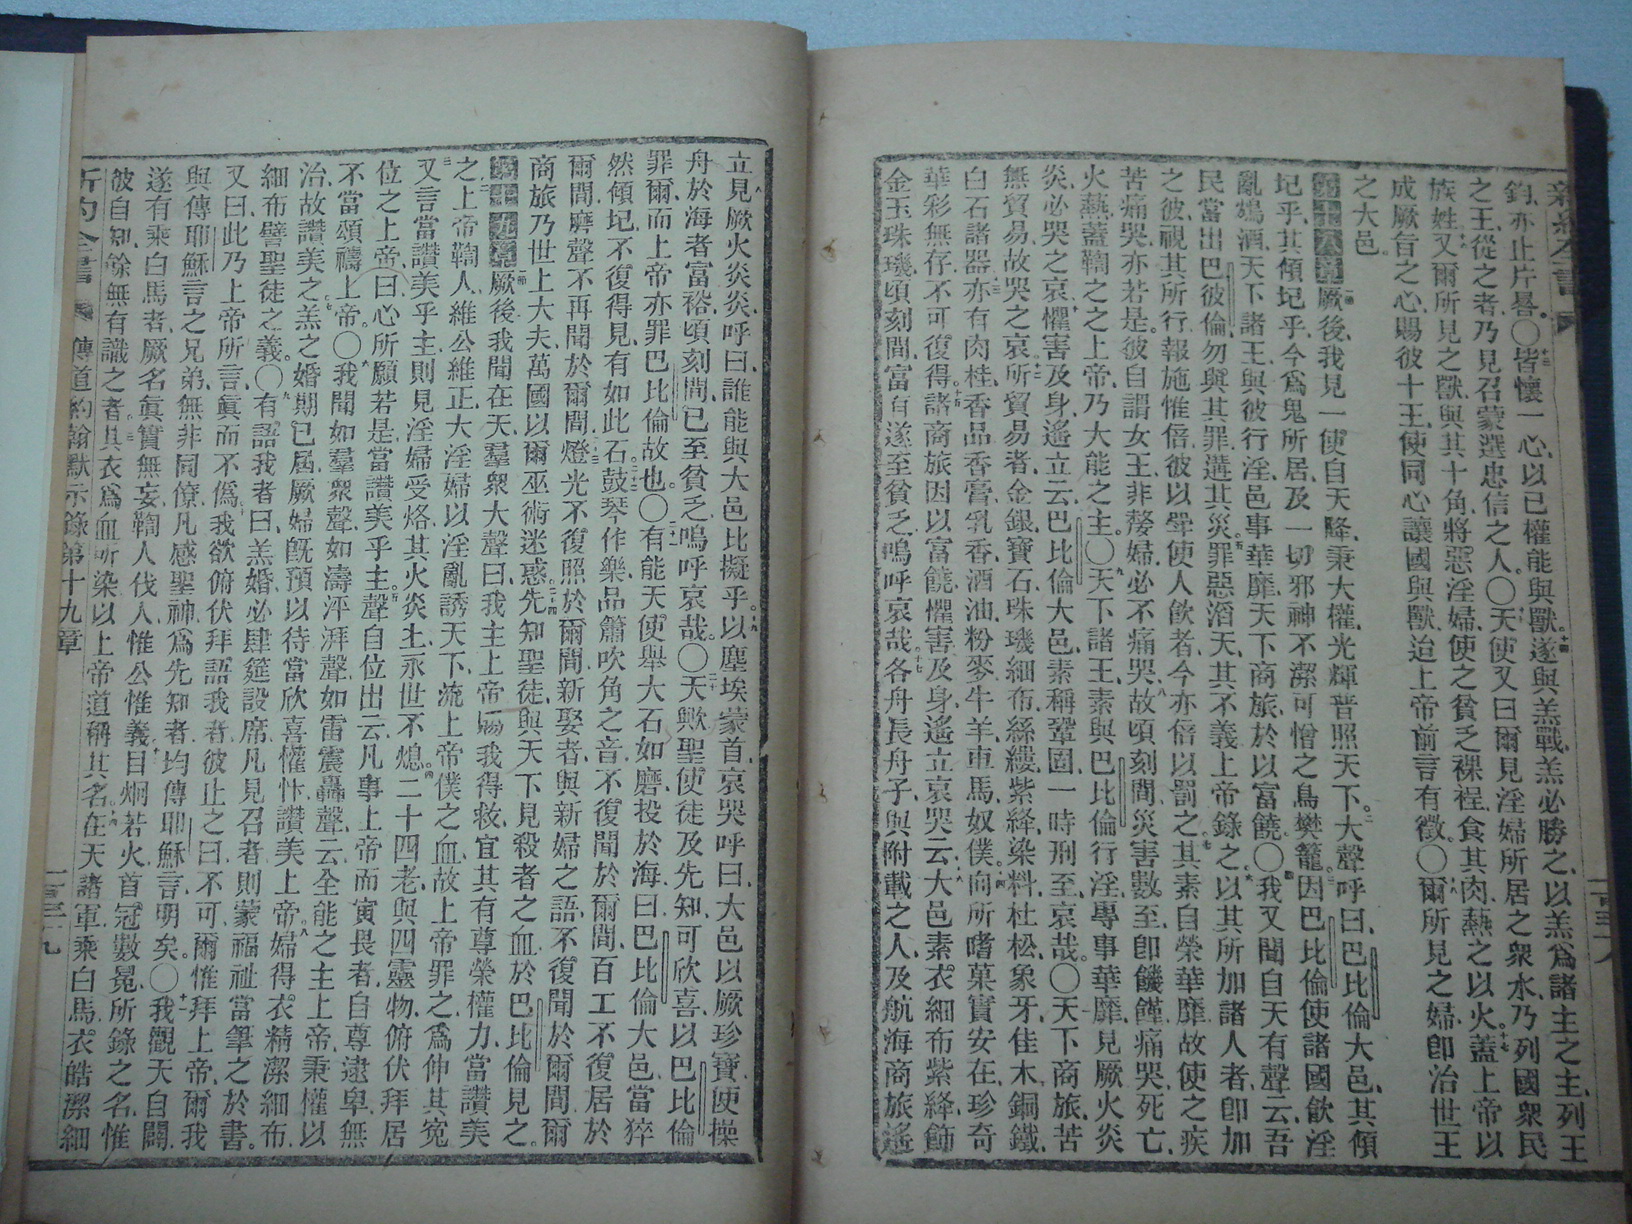 新約全書
鈞亦止片晷○皆懷一心以已權能與獸遂與羔戰羔必勝之以羔爲諸主之主列王
之王從之者乃見召蒙選忠信之人○天使又曰爾見淫婦所居之衆水乃列國衆民
族姓又爾所見之獸與其十角將惡淫婦使之貧乏裸裎食其肉爇之以火蓋上帝以
成厥旨之心賜彼十王使同心讓國與獸迨上帝前言有徵○爾所見之婦卽治世王
之大邑
第十八章厥後我見一使自天降秉大權光輝普照天下大聲呼曰巴比倫大邑其傾
圮乎其傾圮乎今爲鬼所居及一切邪神不潔可憎之鳥樊籠因巴比倫使諸國飮淫
亂鴆酒天下諸王與彼行淫邑事華靡天下商旅於以富饒○我又聞自天有聲云吾
民當出巴彼倫勿與其罪遘其災罪惡滔天其不義上帝錄之以其所加諸人者卽加
之彼視其所行報施惟倍彼以斝使人飮者今亦倍以罰之其素自榮華靡故使之疾
苦痛哭亦若是彼自謂女王非嫠婦必不痛哭故頃刻間災害數至卽饑饉痛哭死亡
火爇蓋鞫之之上帝乃大能之主○天下諸王素與巴比倫行淫專事華靡見厥火炎
炎必哭之哀懼害及身遙立云巴比倫大邑素稱鞏固一時刑至哀哉○天下商旅苦
無貿易故哭之哀所貿易者金銀寶石珠璣細布絲縷紫絳染料杜松象牙佳木銅鐵
白石諸器亦有肉桂香品香膏乳香酒油粉麥牛羊車馬奴僕向所嗜菓實安在珍奇
華彩無存不可復得諸商旅因以富饒懼害及身遙立哀哭云大邑素衣細布紫絳飾
金玉珠璣頃刻間富有遂至貧乏嗚呼哀哉各舟長舟子與附載之人及航海商旅遙
立見厥火炎炎呼曰誰能與大邑比擬乎以塵埃蒙首哀哭呼曰大邑以厥珍寶使操
舟於海者富裕頃刻間已至貧乏嗚呼哀哉○天歟聖使徒及先知可欣喜以巴比倫
罪爾而上帝亦罪巴比倫故也○有能天使舉大石如磨投於海曰巴比倫大邑當猝
然傾圮不復得見有如此石鼓琴作樂品簫吹角之音不復聞於爾間百工不復居於
爾間磨聲不再聞於爾間燈光不復照於爾間新娶者與新婦之語不復聞於爾間爾
商旅乃世上大夫萬國以爾巫術迷惑先知聖徒與天下見殺者之血於巴比倫見之
第十九章厥後我聞在天羣衆大聲曰我主上帝賜我得救宜其有尊榮權力當讚美
之上帝鞫人維公維正大淫婦以淫亂誘天下流上帝僕之血故上帝罪之爲伸其寃
又言當讚美乎主則見淫婦受烙其火炎上永世不熄二十四老與四靈物俯伏拜居
位之上帝曰心所願若是當讚美乎主聲自位出云凡事上帝而寅畏者自尊逮卑無
不當頌禱上帝○我聞如羣衆聲如濤泙湃聲如雷震轟聲云全能之主上帝秉權以
治故讚美之羔之婚期已屆厥婦旣預以待當欣喜懽忭讚美上帝婦得衣精潔細布
細布譬聖徒之義○有語我者曰羔婚必肆筵設席凡見召者則蒙福祉當筆之於書
又曰此乃上帝所言眞而不僞我欲俯伏拜語我者彼止之曰不可爾惟拜上帝爾我
與傳耶穌言之兄弟無非同僚凡感聖神爲先知者均傳耶穌言明矣○我觀天自闢
遂有乘白馬者厥名眞實無妄鞫人伐人惟公惟義目炯若火首冠數冕所錄之名惟
彼自知餘無有識之者其衣爲血所染以上帝道稱其名在天諸軍乘白馬衣皓潔細
新約全書 傳道約翰默示錄第十九章 一百三十九